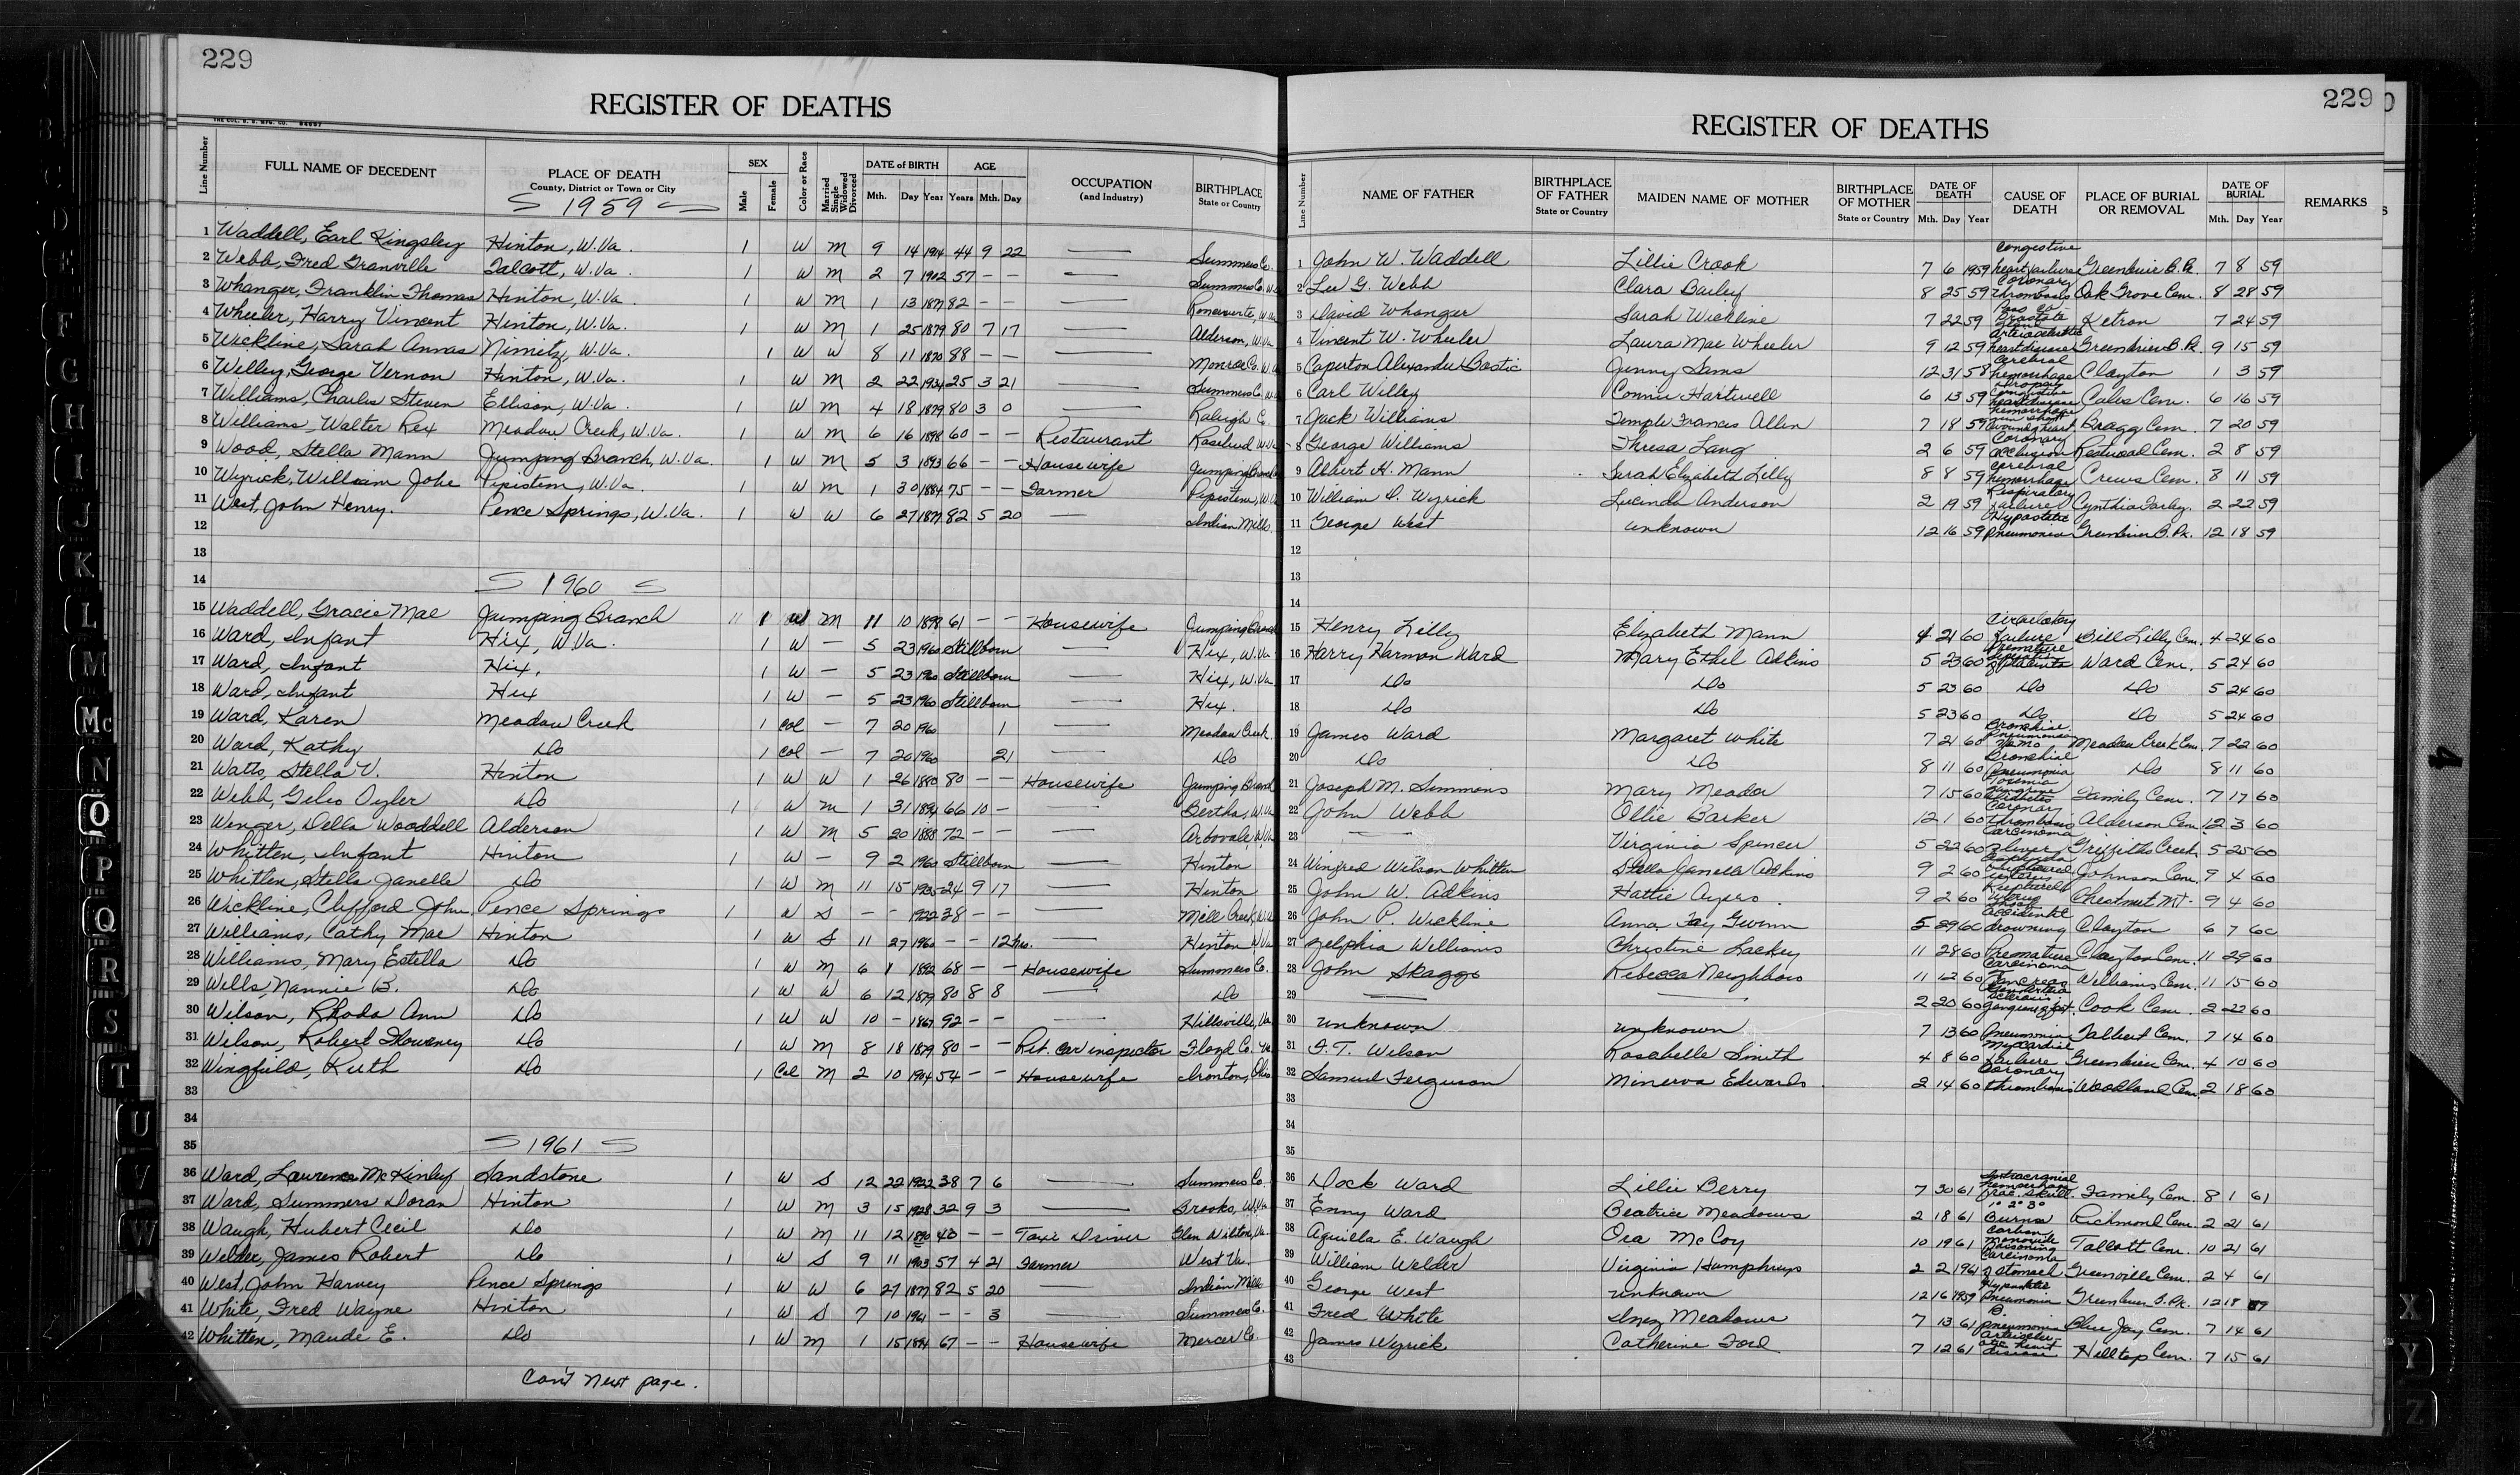 229
REGISTER OF DEATHS
Line Number FULL NAME OF DECEDENT PLACE OF DEATH County, District or Town or City SEX Male Female Color or Race Married Single Widowed Divorced DATE of BIRTH Mth. Day Year AGE Years Mth. Day OCCUPATION (and Industry) BIRTHPLACE State or Country
1959
1 Waddell, Earl Kingsley Hinton, W.Va. 1 W M 9 14 1914 44 9 22 — Summers Co.
2 Webb, Fred Granville Talcott, W.Va. 1 W M 2 7 1902 57 — — — Summers Co. W.Va
3 Whanger, Franklin Thomas Hinton, W.Va. 1 W M 1 13 1877 82 — — — Ronceverte, W.Va
4 Wheeler, Harry Vincent Hinton, W.Va. 1 W M 1 25 1879 80 7 17 — Alderson, W.Va
5 Wickline, Sarah Annas Nimitz, W.Va. 1 W W 8 11 1870 88 — — — Monroe Co. W.Va
6 Willey, George Vernon Hinton, W.Va. 1 W M 2 22 1934 25 3 21 — Summers Co. W.Va
7 Williams, Charles Steven Ellison, W.Va. 1 W M 4 18 1879 80 3 0 — Raleigh C
8 Williams, Walter Rex Meadow Creek, W.Va. 1 W M 6 16 1898 60 — — Restaurant Rosebud W.Va
9 Wood, Stella Mann Jumping Branch, W.Va. 1 W M 5 3 1893 66 — — Housewife Jumping Branch
10 Wyrick, William John Pipestem, W.Va. 1 W M 1 30 1884 75 — — Farmer Pipestem, W.Va
11 West, John Henry. Pence Springs, W.Va. 1 W W 6 27 1877 82 5 20 — Indian Mills
12
13
14 1960
15 Waddell, Gracie Mae Jumping Branch 1 W M 11 10 1898 61 — — Housewife Jumping Branch
16 Ward, Infant Hix, W.Va. 1 W — 5 23 1960 Stillborn — Hix, W.Va
17 Ward, Infant Hix, 1 W — 5 23 1960 Stillborn — Hix, W.Va
18 Ward, Infant Hix 1 W — 5 23 1960 Stillborn — Hix.
19 Ward, Karen Meadow Creek 1 Col — 7 20 1960 1 — Meadow Creek
20 Ward, Kathy Do 1 Col — 7 20 1960 21 — Do
21 Watts, Stella V. Hinton 1 W W 1 26 1880 80 — — Housewife Jumping Branch
22 Webb, Giles Oyler Do 1 W M 1 31 1894 66 10 — — Bertha, W.Va
23 Wenger, Della Wooddell Alderson 1 W M 5 20 1888 72 — — — Arbovale, W.Va
24 Whitten, Infant Hinton 1 W — 9 2 1960 Stillborn — Hinton
25 Whitten, Stella Janelle Do 1 W M 11 15 1935 24 9 17 — Hinton
26 Wickline, Clifford John Pence Springs 1 W S — — 1922 38 — — — Mill Creek, W.Va
27 Williams, Cathy Mae Hinton 1 W S 11 27 1960 — — 12 hrs. — Hinton W.Va
28 Williams, Mary Estella Do 1 W M 6 1 1892 68 — — Housewife Summers Co.
29 Wells, Nannie B. Do 1 W W 6 12 1879 80 8 8 — Do
30 Wilson, Rhoda Ann Do 1 W W 10 — 1867 92 — — — Hillsville, Va
31 Wilson, Robert Flowrney Do 1 W M 8 18 1879 80 — — Ret. Car inspector Floyd Co. Va
32 Wingfield, Ruth Do 1 Col M 2 10 1904 54 — — Housewife Ironton, Ohio
33
34
35 1961
36 Ward, Lawrence McKinley Sandstone 1 W S 12 22 1922 38 7 6 — Summers Co.
37 Ward, Summers Doran Hinton 1 W M 3 15 1928 32 9 3 — Brooks, W.Va
38 Waugh, Hubert Cecil Do 1 W M 11 12 40 — — Taxi Driver Glen Wilton, Va.
39 Welder, James Robert Do 1 W S 9 11 1903 57 4 21 Farmer West Va.
40 West, John Harvey Pence Springs 1 W W 6 27 1877 82 5 20 — Indian Mills
41 White, Fred Wayne Hinton 1 W S 7 10 1961 — — 3 Summers Co.
42 Whitten, Maude E. Do 1 W M 1 15 1894 67 — — Housewife Mercer Co.
Con't Next page.
229
REGISTER OF DEATHS
Line Number NAME OF FATHER BIRTHPLACE OF FATHER State or Country MAIDEN NAME OF MOTHER BIRTHPLACE OF MOTHER State or Country DATE OF DEATH Mth. Day Year CAUSE OF DEATH PLACE OF BURIAL OR REMOVAL DATE OF BURIAL Mth. Day Year REMARKS
1 John W. Waddell Lillie Crook 7 6 1959 Congestive heart failure Greenbrier B. Pk. 7 8 59
2 Lee G. Webb Clara Bailey 8 25 59 Coronary Thrombosis Oak Grove Cem. 8 28 59
3 David Whanger Sarah Wickline 7 22 59 Prostate Gland Ketron 7 24 59
4 Vincent W. Wheeler Laura Mae Wheeler 9 12 59 Arteriosclerotic heart disease Greenbrier B. Pk. 9 15 59
5 Caperton Alexander Bostic Jenny Sams 12 31 58 Cerebral hemorrhage Clayton 1 3 59
6 Carl Willey Connie Hartwell 6 13 59 Cales Cem. 6 16 59
7 Jack Williams Temple Francis Allen 7 18 59 hemorrhage gun shot wound heart Bragg Cem. 7 20 59
8 George Williams Thresa Lang 2 6 59 Coronary occlusion Restwood Cem. 2 8 59
9 Albert H. Mann Sarah Elizabeth Lilly 8 8 59 Cerebral hemorrhage Crews Cem. 8 11 59
10 William D. Wyrick Lucinda Anderson 2 19 59 Respiratory failure Cynthia Farley. 2 22 59
11 George West unknown 12 16 59 Hypostatic pneumonia Greenbrier B. Pk. 12 18 59
12
13
14
15 Henry Lilly Elizabeth Mann 4 21 60 Circulatory failure Bill Lilly Cem. 4 24 60
16 Harry Harmon Ward Mary Ethel Adkins 5 23 60 Premature separation of placenta Ward Cem. 5 24 60
17 Do Do 5 23 60 Do Do 5 24 60
18 Do Do 5 23 60 Do Do 5 24 60
19 James Ward Margaret White 7 21 60 Bronchial Pneumonia Meadow Creek Cem. 7 22 60
20 Do Do 8 11 60 Bronchial Pneumonia Do 8 11 60
21 Joseph M. Simmons Mary Meador 7 15 60 Diabetes Family Cem. 7 17 60
22 John Webb Ollie Barker 12 1 60 Coronary thrombosis Alderson Cem. 12 3 60
23 — Virginia Spencer 5 22 60 Carcinoma of liver Griffiths Creek 5 25 60
24 Winfred Wilson Whitten Stella Janelle Adkins 9 2 60 ruptured uterus Johnson Cem. 9 4 60
25 John W. Adkins Hattie Ayers 9 2 60 Ruptured uterus shock Chestnut Mt. 9 4 60
26 John P. Wickline Anna Fay Gwinn 5 29 60 accidental drowning Clayton 6 7 60
27 Zelphia Williams Christine Lackey 11 28 60 Premature Clayton Cem. 11 29 60
28 John Skaggs Rebecca Neighbors 11 12 60 Carcinoma Pancreas Williams Cem. 11 15 60
29 — — 2 20 60 Cook Cem. 2 22 60
30 unknown unknown 7 13 60 Pneumonia Talbert Cem. 7 14 60
31 F. T. Wilson Rosabelle Smith 4 8 60 Myocardial failure Greenbrier Cem. 4 10 60
32 Samuel Ferguson Minerva Edwards 2 14 60 Coronary thrombosis Woodland Cem. 2 18 60
33
34
35
36 Dock Ward Lillie Berry 7 30 61 Intracranial hemorrhage frac. skull Family Cem. 8 1 61
37 Enny Ward Beatrice Meadows 2 18 61 1° 2° 3° Burns Richmond Cem. 2 21 61
38 Aquilla E. Waugh Ora McCoy 10 19 61 Carbon monoxide Poisoning Talcott Cem. 10 21 61
39 William Welder Virginia Humphreys 2 2 1961 Carcinoma of stomach Greenville Cem. 2 4 61
40 George West unknown 12 16 1959 Hypostatic Pneumonia Greenbrier B. Pk. 12 18
41 Fred White Inez Meadows 7 13 61 B. pneumonia Blue Jay Cem. 7 14 61
42 James Wyrick Catherine Ford 7 12 61 heart disease Hilltop Cem. 7 15 61
43
F
G
H
I
J
K
L
M
Mc
N
O
P
Q
R
S
T
U
V
W
X
Y
Z
4